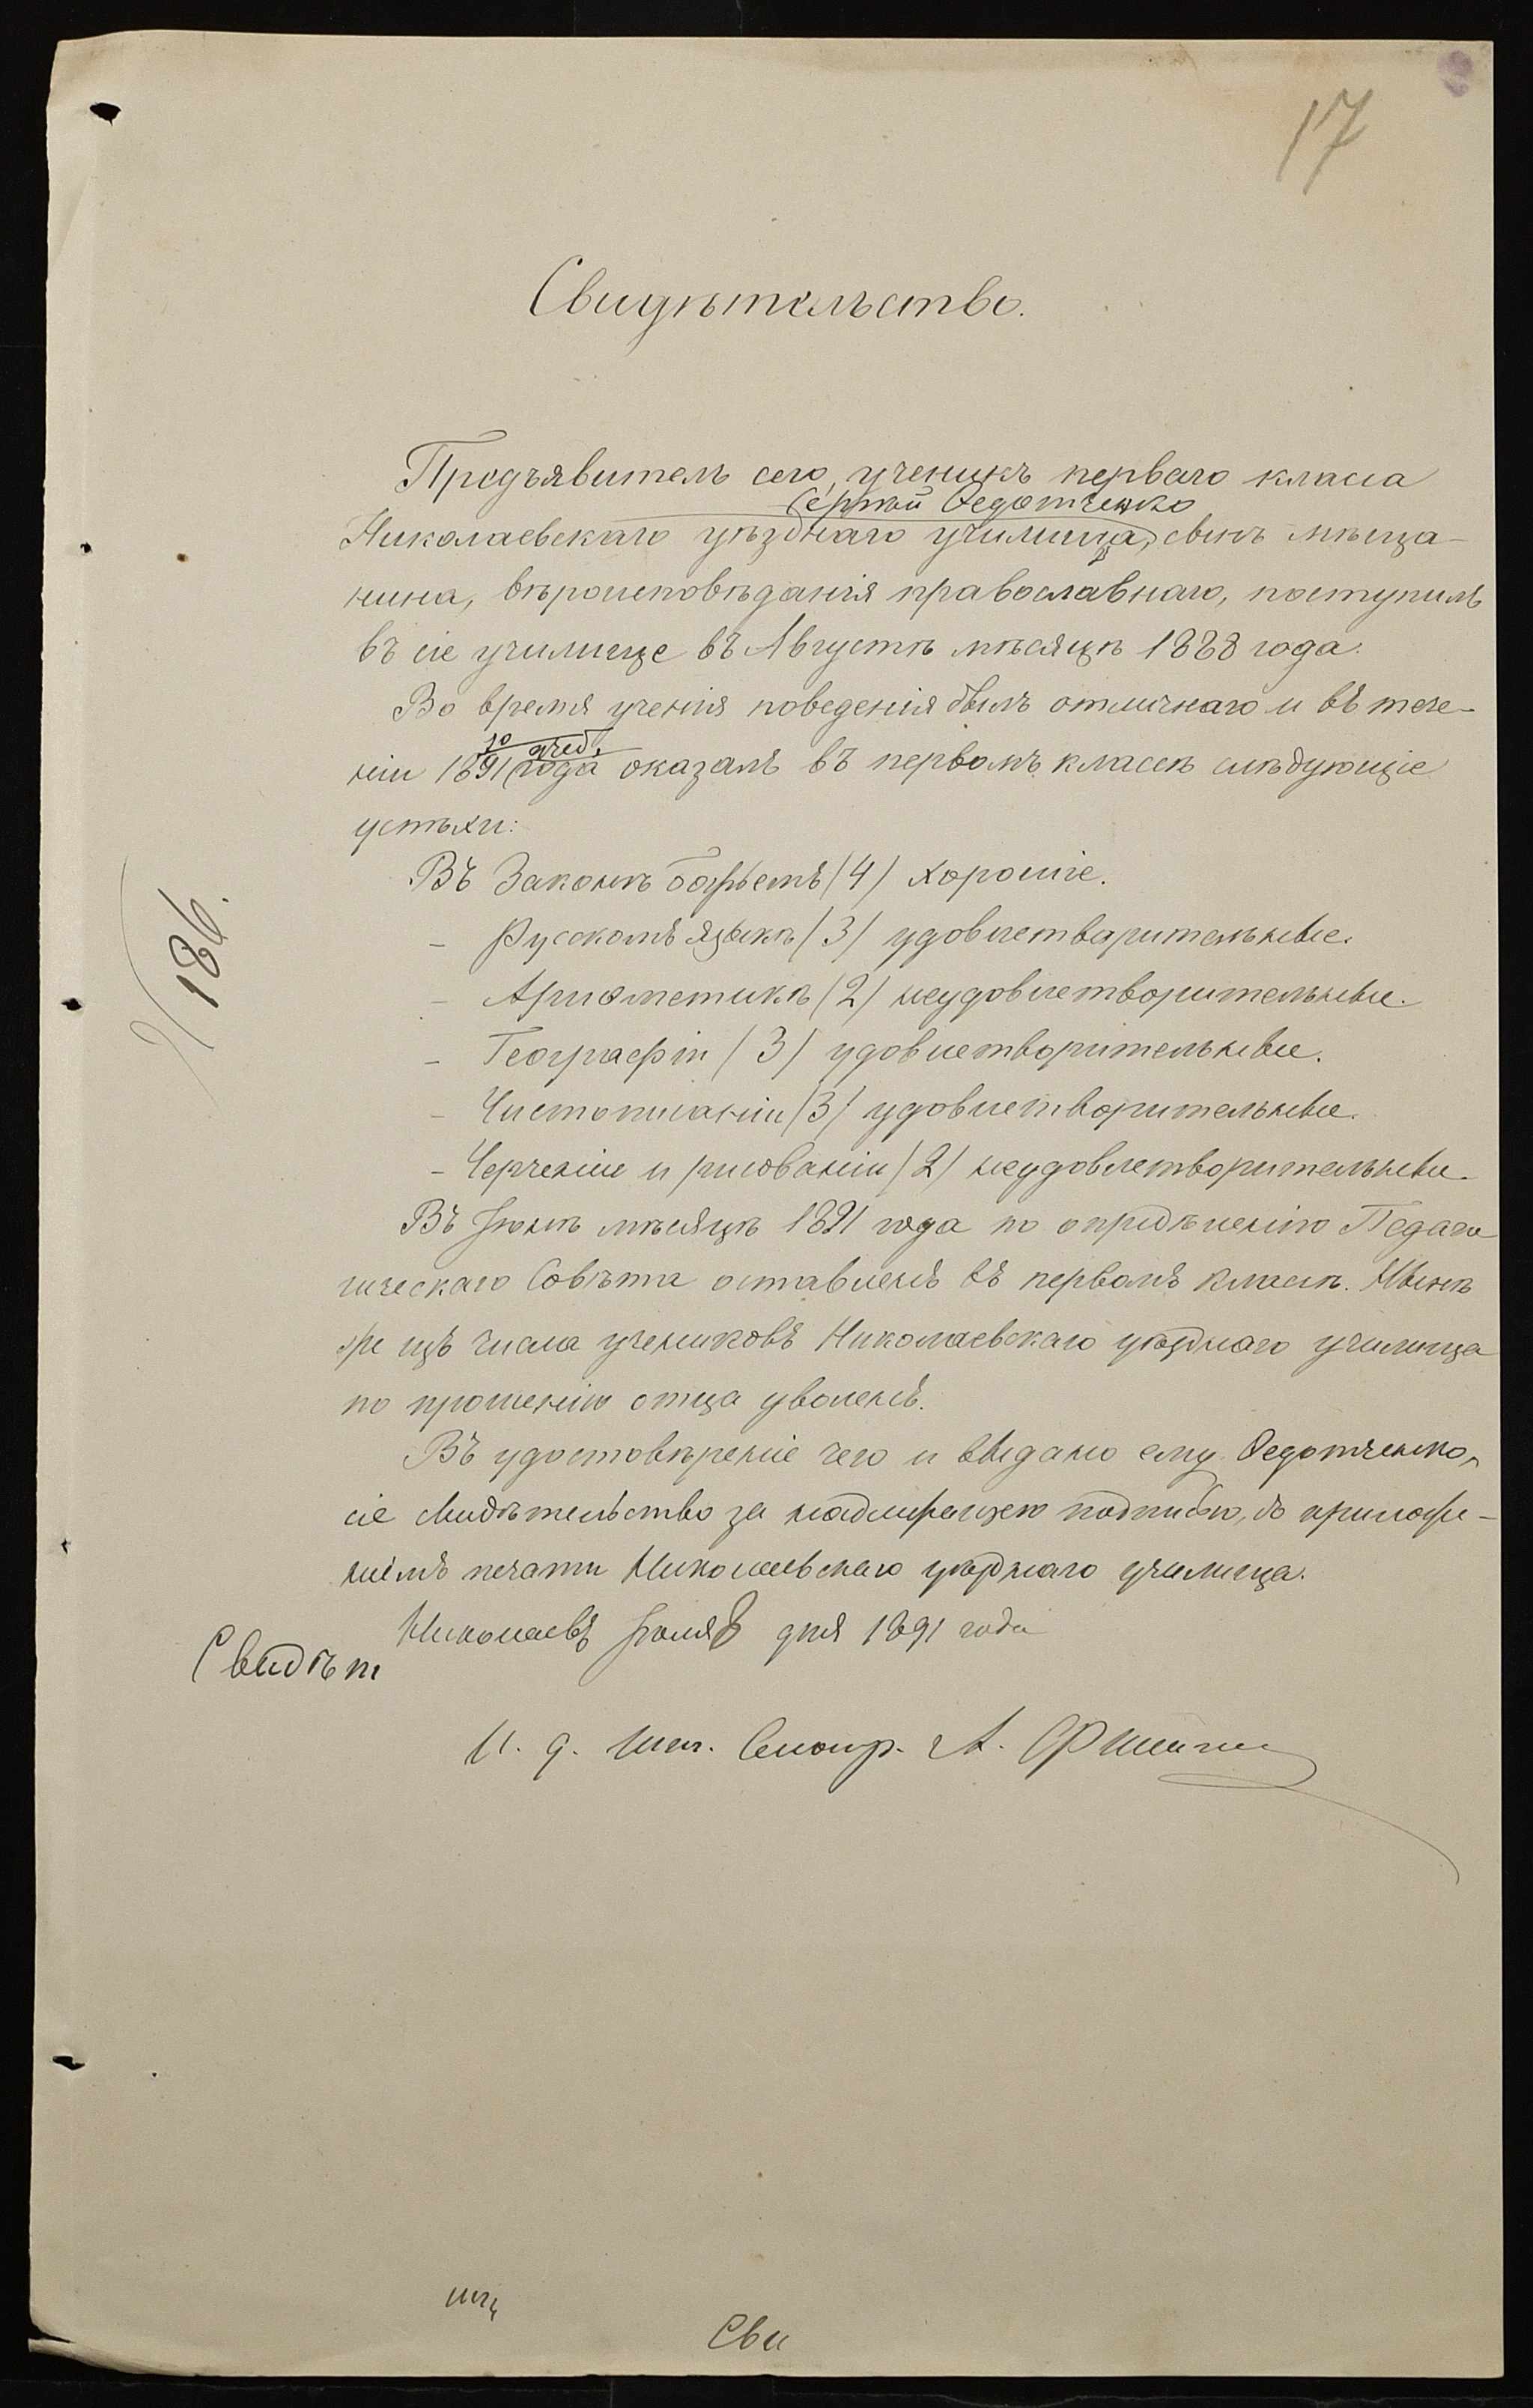 17
Свидѣтельство.
Предъявитель сего, ученикъ перваго класса
Сергѣй Ѳедотченко
Николаевскаго уѣзднаго училища, сынъ мѣща-
нина, вѣроисповѣданія православнаго, поступилъ
въ сіе училище въ Августѣ мѣсяцѣ 1888 года.
Во время ученія поведенія былъ отличнаго и въ тече-
учеб.
ніи 1891 года оказалъ въ первомъ классѣ слѣдующіе
успѣхи:
Въ Законѣ Божьемъ (4) хорошіе.
- Русскомъ языкѣ (3) удовлетварительные.
- Ариѳметикѣ (2) неудовлетворительные.
- Географіи (3) удовлетворительные.
- Чистописаніи (3) удовлетворительные.
- Черченіи и рисованіи (2) неудовлетворительные.
186.
Въ Іюнѣ мѣсяцѣ 1891 года по опредѣленію Педаго
гическаго Совѣта оставленъ въ первомъ классѣ. Нынѣ
же изъ числа учениковъ Николаевскаго уѣзднаго училища
по прошенію отца уволенъ.
Въ удостовѣреніе чего и выдано ему Ѳедотченко,
сіе свидѣтельство за надлежащею подписью, съ приложе-
ніемъ печати Николаевскаго уѣзднаго училища.
Николаевъ Іюля 8 дня 1891 года
Свидѣт
И. д. Шт. Смотр. А.
Сви